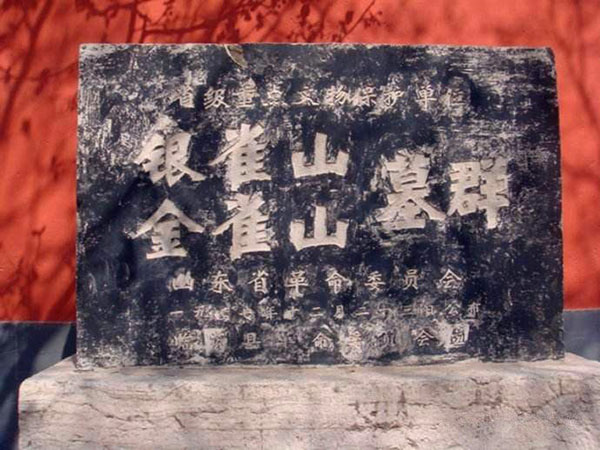 省级重点文物保护单位
银雀山
金雀山 墓群
山东省革命委员会
一九七七年十二月二十三日公布
临沂县革命委员会立